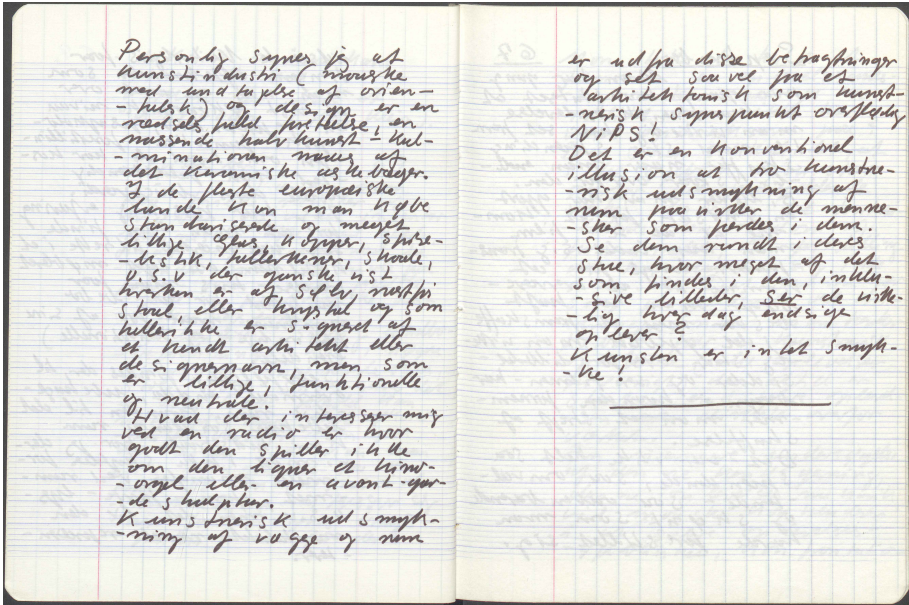 Personlig synes jeg at
kunstindustri (måske
med undtagelse af orien-
-talsk) og design er en
rædselsfuld forteelse, en
massende halvkunst - Kul-
-minationen nåes af
det keramiske askebæger.
I de fleste europæiske
lande kan man købe
standariserede og meget
billige glas, kopper, spise-
-bestik, tallerkener, skåle,
o.s.v der ganske vist
hverken er af sølv, rustfri
stål, eller krystal og som
heller ikke er signeret af
et kendt arkitekt eller
designernavn, men som
er billige, funktionelle
og neutrale.
Hvad der interesser mig
ved en radio er hvor
godt den spiller ikke
om den ligner et kino-
-orgel eller en avant-gar-
-de skulptur.
Kunstnerisk udsmyk-
-ning af vægge og rum
er udfra disse betragtninger
og set såvel på et
arkitektonisk som kunst-
-nerisk synspunkt overflødig
NIPS!
Det er en konventionel
illusion at tro kunstne-
-risk udsmykning af
rum påvirker de menne-
-sker som færdes i dem.
Se dem rundt i deres
stue, hvor meget af det
som findes i den, inklu-
-sive billeder, ser de virke-
-lig hver dag endsige
oplever?
Kunsten er intet smyk-
-ke!